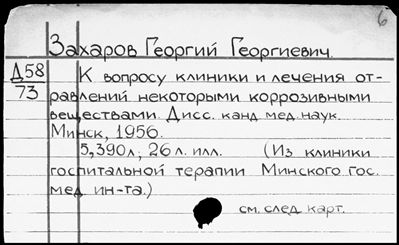 6
Захаров Георгий Георгиевич.
Д58
73
К вопросу клиники и лечения от-
равлений некоторыми коррозивными
веществами. Дисс. канд. мед. наук.
Минск, 1956.
5,390л; 26 л. илл. (Из клиники
госпитальной терапии Минского гос.
мед. ин-та.)
см. след. карт.